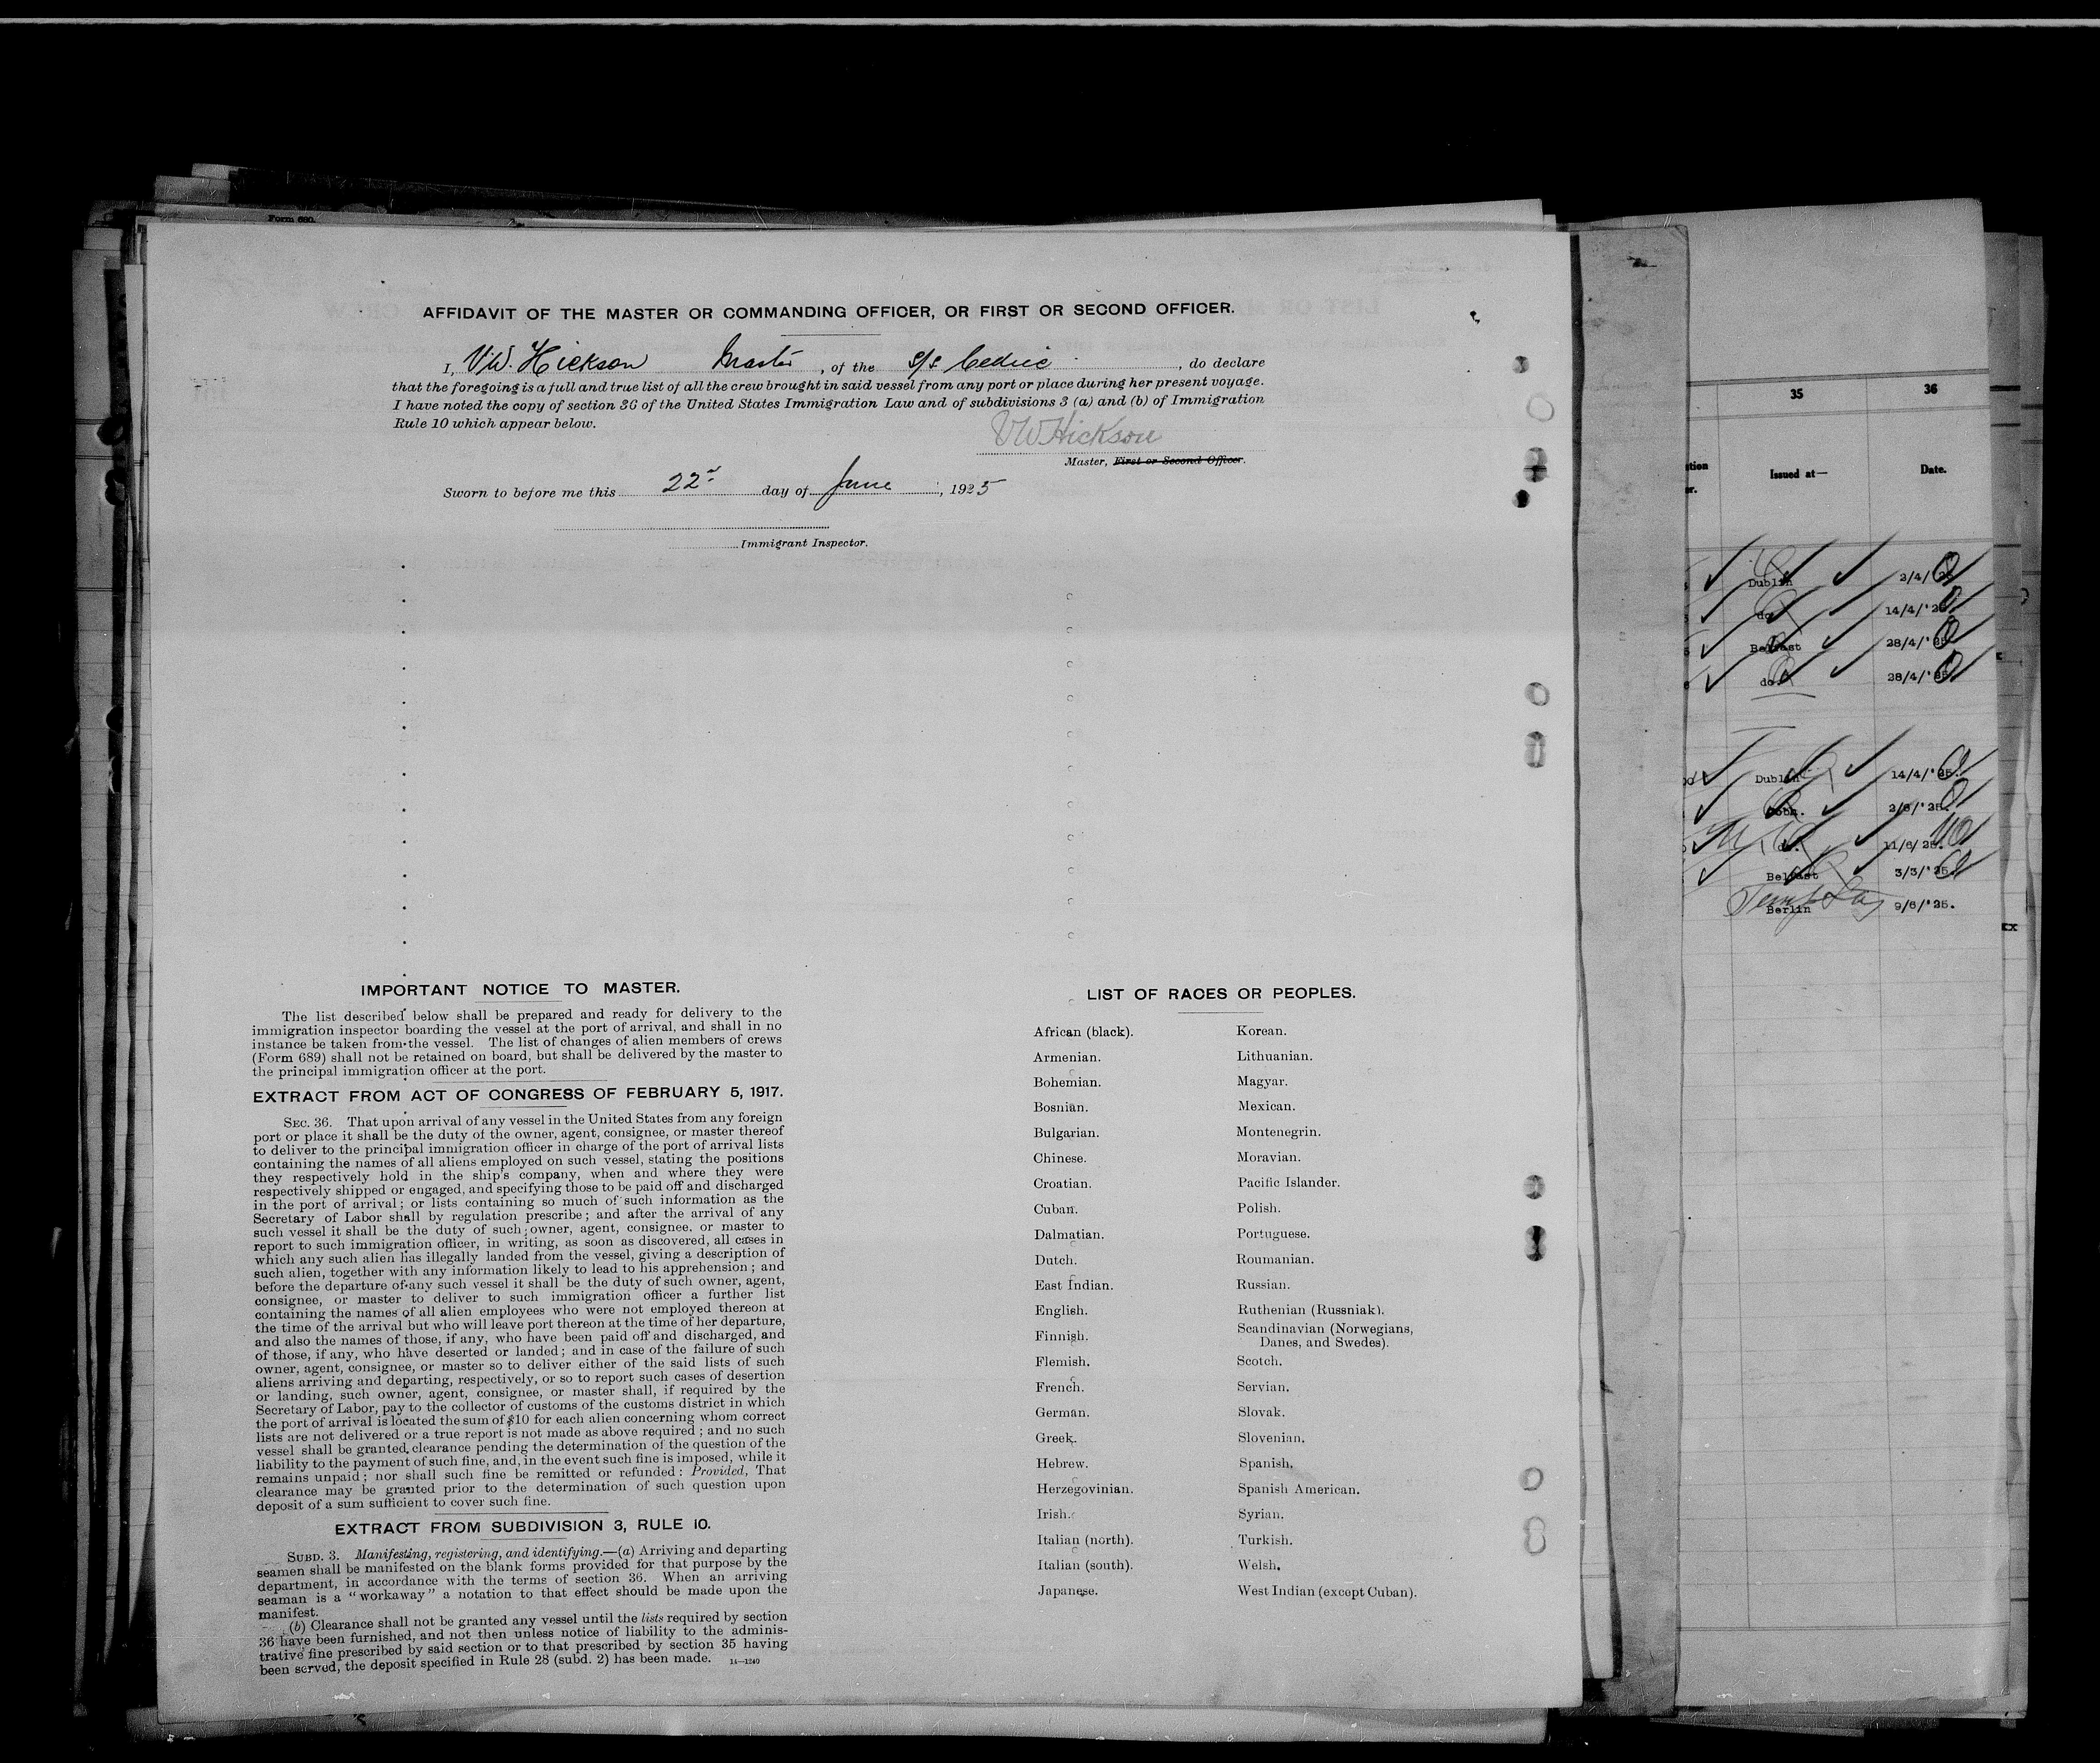 Form 680.
AFFIDAVIT OF THE MASTER OR COMMANDING OFFICER, OR FIRST OR SECOND OFFICER.
I, V.W. Hickson Master, of the S/S Cedric, do declare
that the foregoing is a full and true list of all the crew brought in said vessel from any port or place during her present voyage.
I have noted the copy of section 36 of the United States Immigration Law and of subdivisions 3 (a) and (b) of Immigration
Rule 10 which appear below.
VW Hickson
Master, First or Second Officer.
Sworn to before me this 22d day of June, 1925
Immigrant Inspector.
IMPORTANT NOTICE TO MASTER.
The list described below shall be prepared and ready for delivery to the
immigration inspector boarding the vessel at the port of arrival, and shall in no
instance be taken from the vessel. The list of changes of alien members of crews
(Form 689) shall not be retained on board, but shall be delivered by the master to
the principal immigration officer at the port.
EXTRACT FROM ACT OF CONGRESS OF FEBRUARY 5, 1917.
SEC. 36. That upon arrival of any vessel in the United States from any foreign
port or place it shall be the duty of the owner, agent, consignee, or master thereof
to deliver to the principal immigration officer in charge of the port of arrival lists
containing the names of all aliens employed on such vessel, stating the positions
they respectively hold in the ship's company, when and where they were
respectively shipped or engaged, and specifying those to be paid off and discharged
in the port of arrival; or lists containing so much of such information as the
Secretary of Labor shall by regulation prescribe; and after the arrival of any
such vessel it shall be the duty of such owner, agent, consignee, or master to
report to such immigration officer, in writing, as soon as discovered, all cases in
which any such alien has illegally landed from the vessel, giving a description of
such alien, together with any information likely to lead to his apprehension; and
before the departure of any such vessel it shall be the duty of such owner, agent,
consignee, or master to deliver to such immigration officer a further list
containing the names of all alien employees who were not employed thereon at
the time of the arrival but who will leave port thereon at the time of her departure,
and also the names of those, if any, who have been paid off and discharged, and
of those, if any, who have deserted or landed; and in case of the failure of such
owner, agent, consignee, or master so to deliver either of the said lists of such
aliens arriving and departing, respectively, or so to report such cases of desertion
or landing, such owner, agent, consignee, or master shall, if required by the
Secretary of Labor, pay to the collector of customs of the customs district in which
the port of arrival is located the sum of $10 for each alien concerning whom correct
lists are not delivered or a true report is not made as above required; and no such
vessel shall be granted clearance pending the determination of the question of the
liability to the payment of such fine, and, in the event such fine is imposed, while it
remains unpaid; nor shall such fine be remitted or refunded: Provided, That
clearance may be granted prior to the determination of such question upon
deposit of a sum sufficient to cover such fine.
EXTRACT FROM SUBDIVISION 3, RULE 10.
SUBD. 3. Manifesting, registering, and identifying.—(a) Arriving and departing
seamen shall be manifested on the blank forms provided for that purpose by the
department, in accordance with the terms of section 36. When an arriving
seaman is a "workaway" a notation to that effect should be made upon the
manifest.
(b) Clearance shall not be granted any vessel until the lists required by section
36 have been furnished, and not then unless notice of liability to the adminis-
trative fine prescribed by said section or to that prescribed by section 35 having
been served, the deposit specified in Rule 28 (subd. 2) has been made. 14—1240
LIST OF RACES OR PEOPLES.
African (black).
Armenian.
Bohemian.
Bosnian.
Bulgarian.
Chinese.
Croatian.
Cuban.
Dalmatian.
Dutch.
East Indian.
English.
Finnish.
Flemish.
French.
German.
Greek.
Hebrew.
Herzegovinian.
Irish.
Italian (north).
Italian (south).
Japanese.
Korean.
Lithuanian.
Magyar.
Mexican.
Montenegrin.
Moravian.
Pacific Islander.
Polish.
Portuguese.
Roumanian.
Russian.
Ruthenian (Russniak).
Scandinavian (Norwegians,
Danes, and Swedes).
Scotch.
Servian.
Slovak.
Slovenian.
Spanish.
Spanish American.
Syrian.
Turkish.
Welsh.
West Indian (except Cuban).
35 36
Issued at— Date.
Dublin 2/4/
do 14/4/'25
Belfast 28/4/'25
do. 28/4/'25
Dublin 14/4/'25.
Cobh. 2/6/'25.
do. 11/6/25.
Belfast 3/3/'25.
Berlin 9/6/'25.